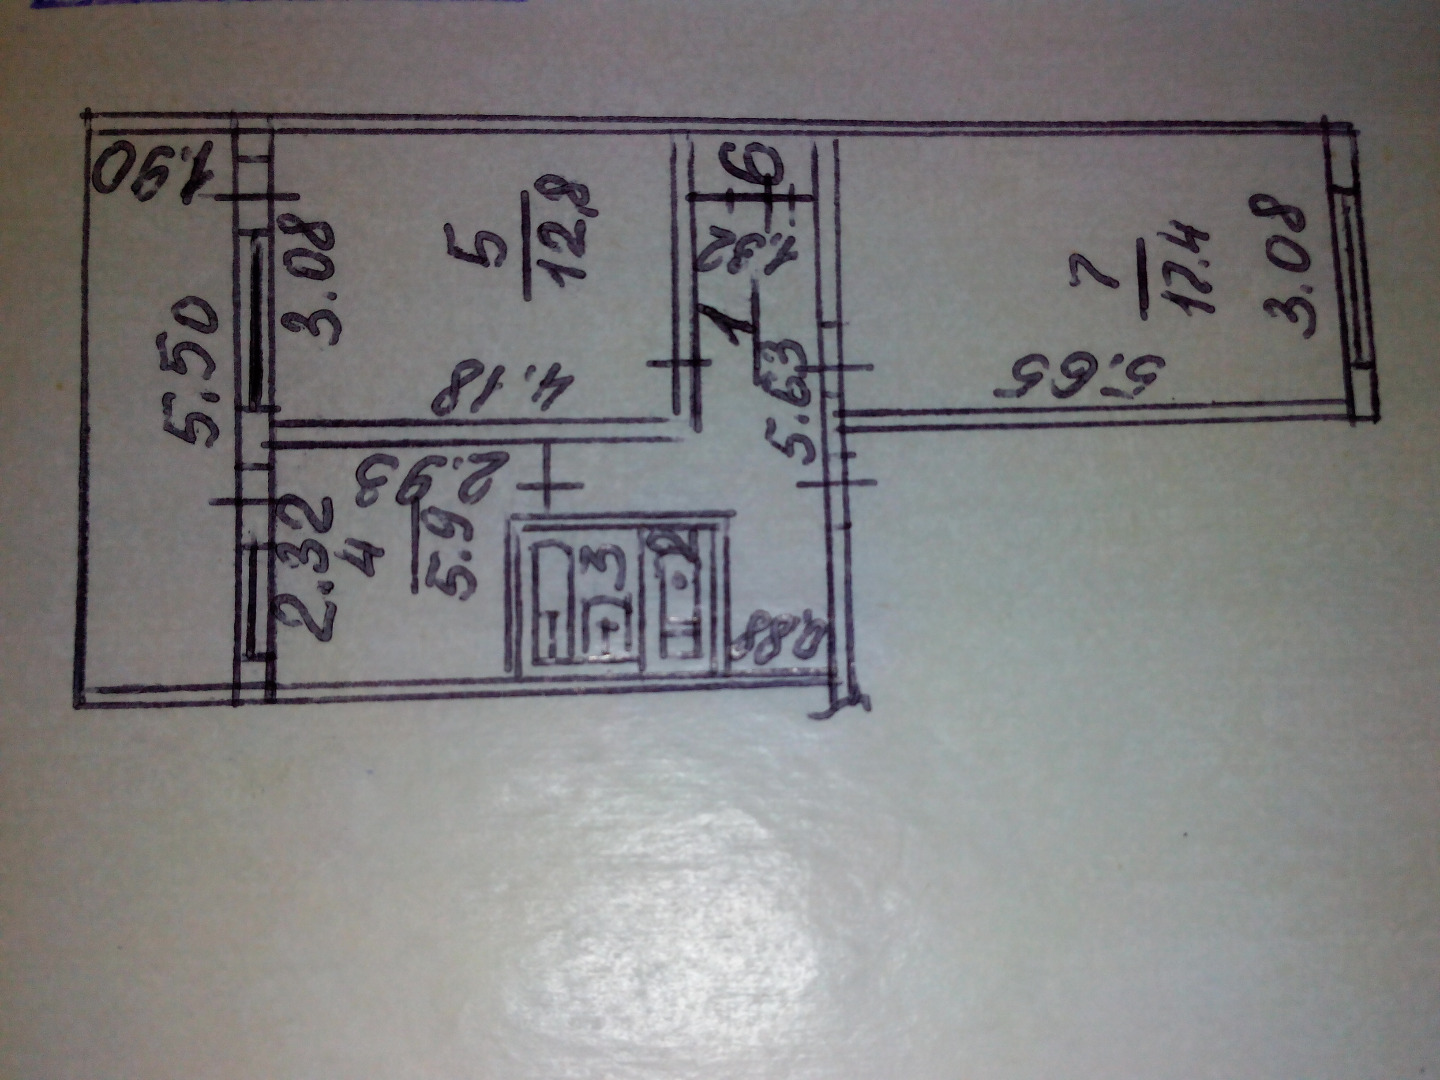 1.90
5.50
3.08
5
12,8
4.18
6
1.32
1
5.63
7
17.4
3.08
5.65
2.93
2.32
4
5.9
3
2
0,88